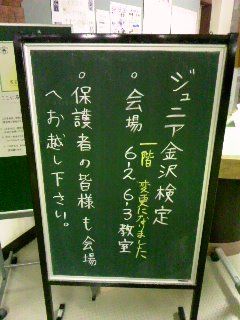 ジュニア金沢検定
○会場 6,2 6,3教室
一階 変更になりました
○保護者の皆様も会場
へお越し下さい。